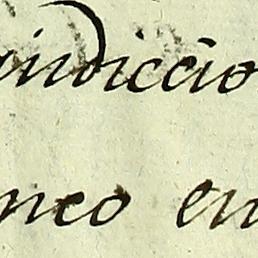 indiccio
neo en